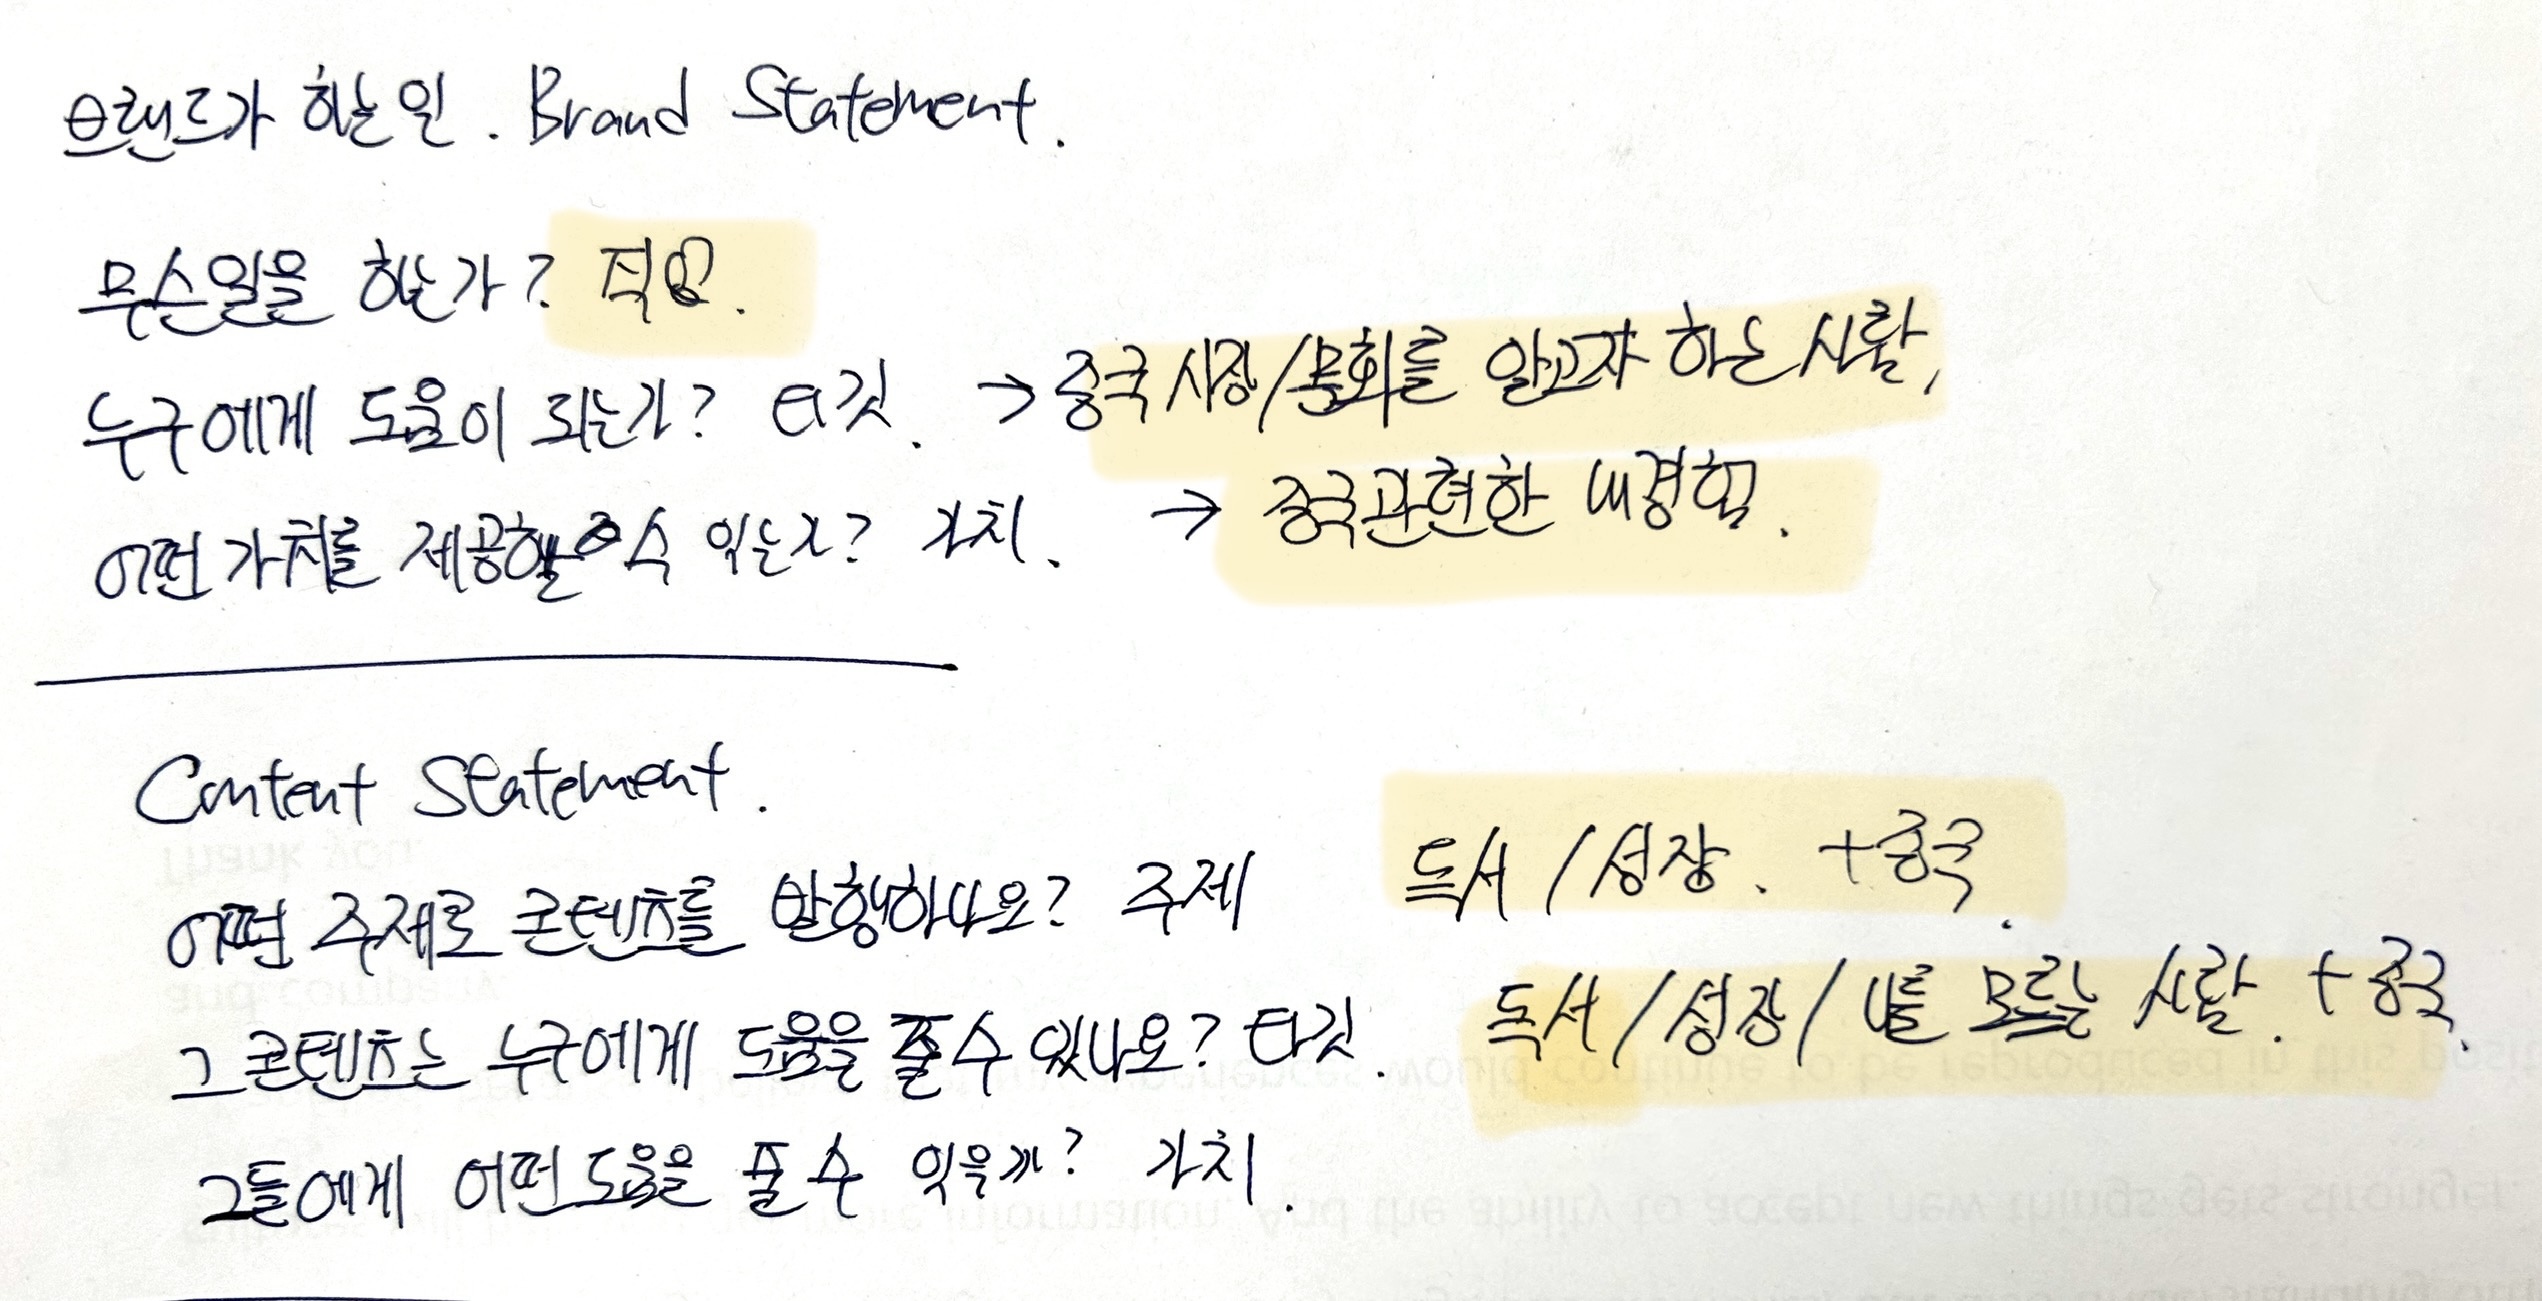 브랜드가 하는 일. Brand Statement.
무슨일을 하는가? 직업.
누구에게 도움이 되는가? 타깃. → 중국 시장/문화를 알고자 하는 사람,
어떤 가치를 제공할 수 있는지? 가치. → 중국관련한 내경험.
Content Statement.
어떤 주제로 콘텐츠를 발행하나요? 주제 독서 / 성장. +중국.
그 콘텐츠는 누구에게 도움을 줄 수 있나요? 타깃. 독서/성장/나를 모르는 사람. +중국.
그들에게 어떤 도움을 줄 수 있을까? 가치.
Thank you.
and company.
experiences would continue to be reproduced in this posit
more information. And the ability to accept new things gets stronger.